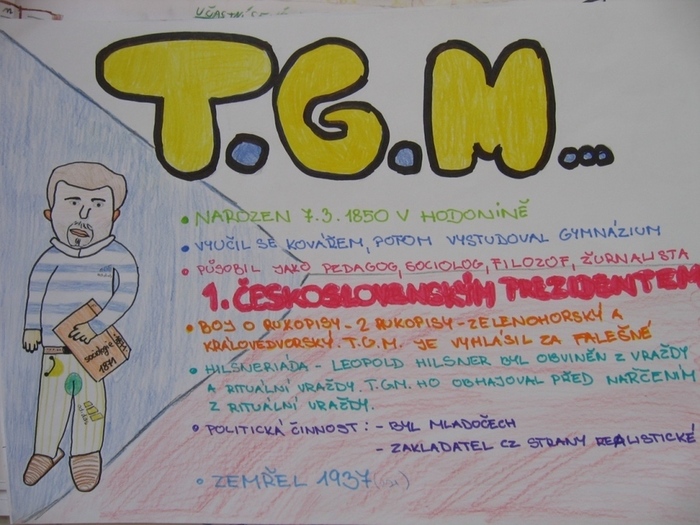 T.G.M...
• NAROZEN 7.3.1850 V HODONÍNĚ
• VYUČIL SE KOVÁŘEM, POTOM VYSTUDOVAL GYMNÁZIUM
• PŮSOBIL JAKO PEDAGOG, SOCIOLOG, FILOZOF, ŽURNALISTA
1. ČESKOSLOVENSKÝM PREZIDENTEM
• BOJ O RUKOPISY - 2 RUKOPISY - ZELENOHORSKÝ A
KRÁLOVEDVORSKÝ. T.G.M. JE VYHLÁSIL ZA FALEŠNÉ
• HILSNERIÁDA - LEOPOLD HILSNER BYL OBVINĚN Z VRAŽDY
A RITUÁLNÍ VRAŽDY. T.G.M. HO OBHAJOVAL PŘED NAŘČENÍM
Z RITUÁLNÍ VRAŽDY.
• POLITICKÁ ČINNOST: - BYL MLADOČECH
- ZAKLADATEL CZ STRANY REALISTICKÉ
• ZEMŘEL 1937
sociologie
1871